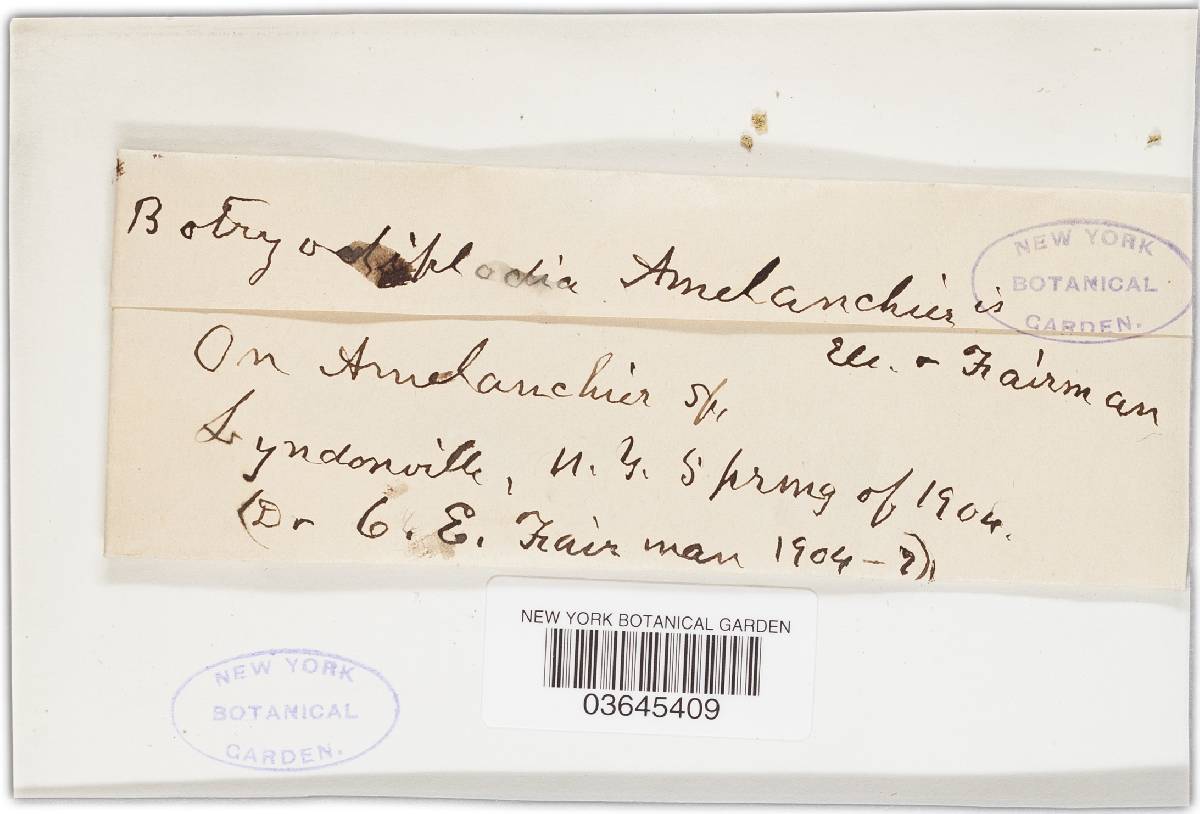 Botryodiplodia Amelanchieris
Ell. & Fairman
On Amelanchier sp.
Lyndonville, N. Y. Spring of 1904.
(Dr C. E. Fairman 1904 – 7).
NEW YORK
BOTANICAL
GARDEN.
NEW YORK BOTANICAL GARDEN
03645409
NEW YORK
BOTANICAL
GARDEN.